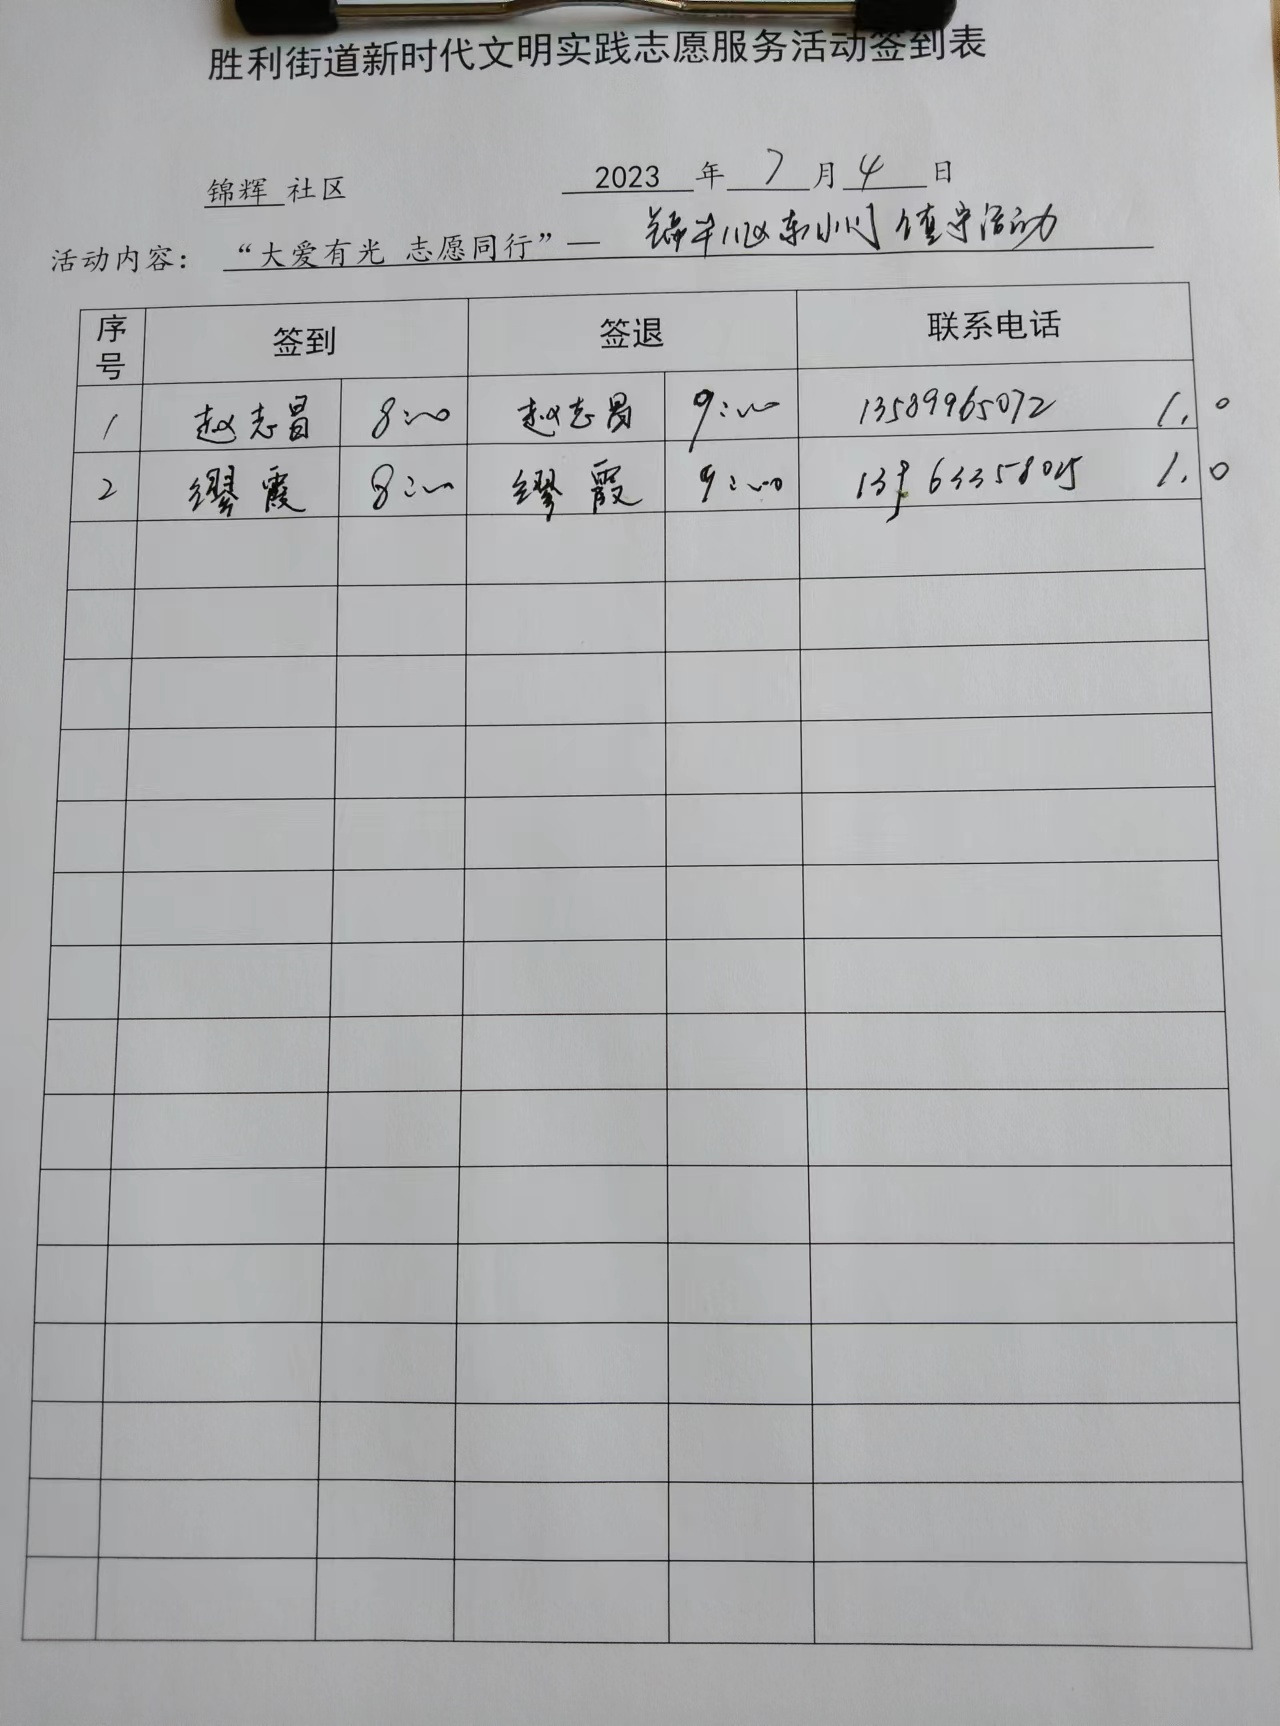 胜利街道新时代文明实践志愿服务活动签到表
锦辉 社区 2023 年 7 月 4 日
活动内容：“大爱有光 志愿同行”— 东小门 值守活动
序号 签到 签退 联系电话
1 赵志昌 8:00 赵志昌 9:00 13589965072 1.0
2 缪霞 8:00 缪霞 9:00 1.0